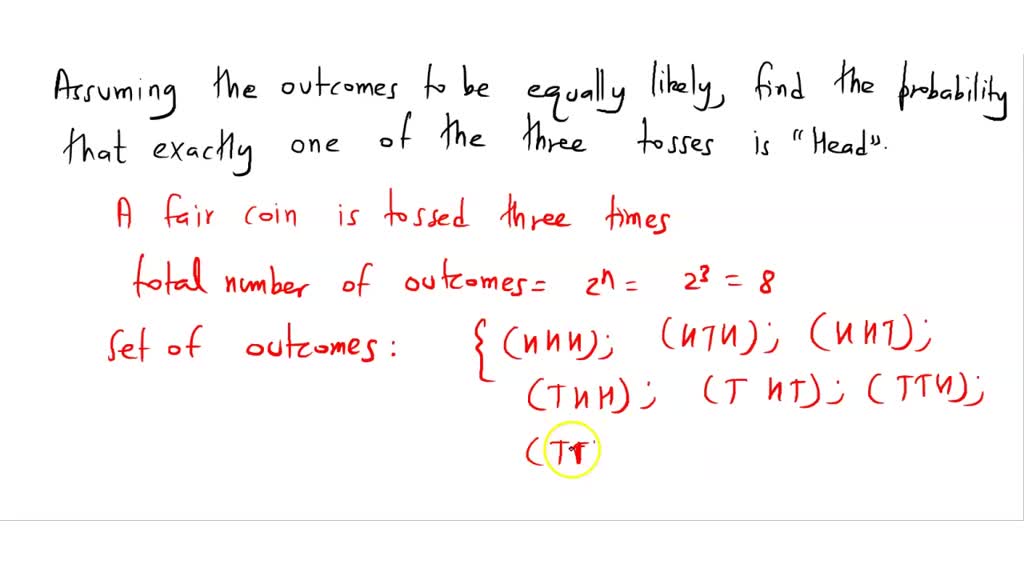 Assuming the outcomes to be equally likely, find the probability
that exactly one of the three tosses is "Head".
A fair coin is tossed three times
total number of outcomes = 2ⁿ = 2³ = 8
Set of outcomes: { (HHH); (HTH); (HHT);
(THH); (THT); (TTH);
(TT